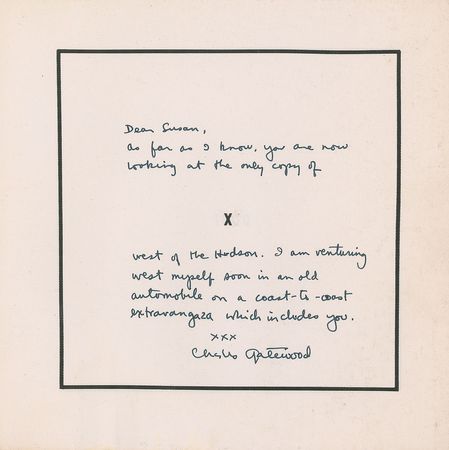 Dear Susan,
as far as I know, you are now
looking at the only copy of
X
west of the Hudson. I am venturing
west myself soon in an old
automobile on a coast-to-coast
extravangaza which includes you.
xxx
Charles Gatewood